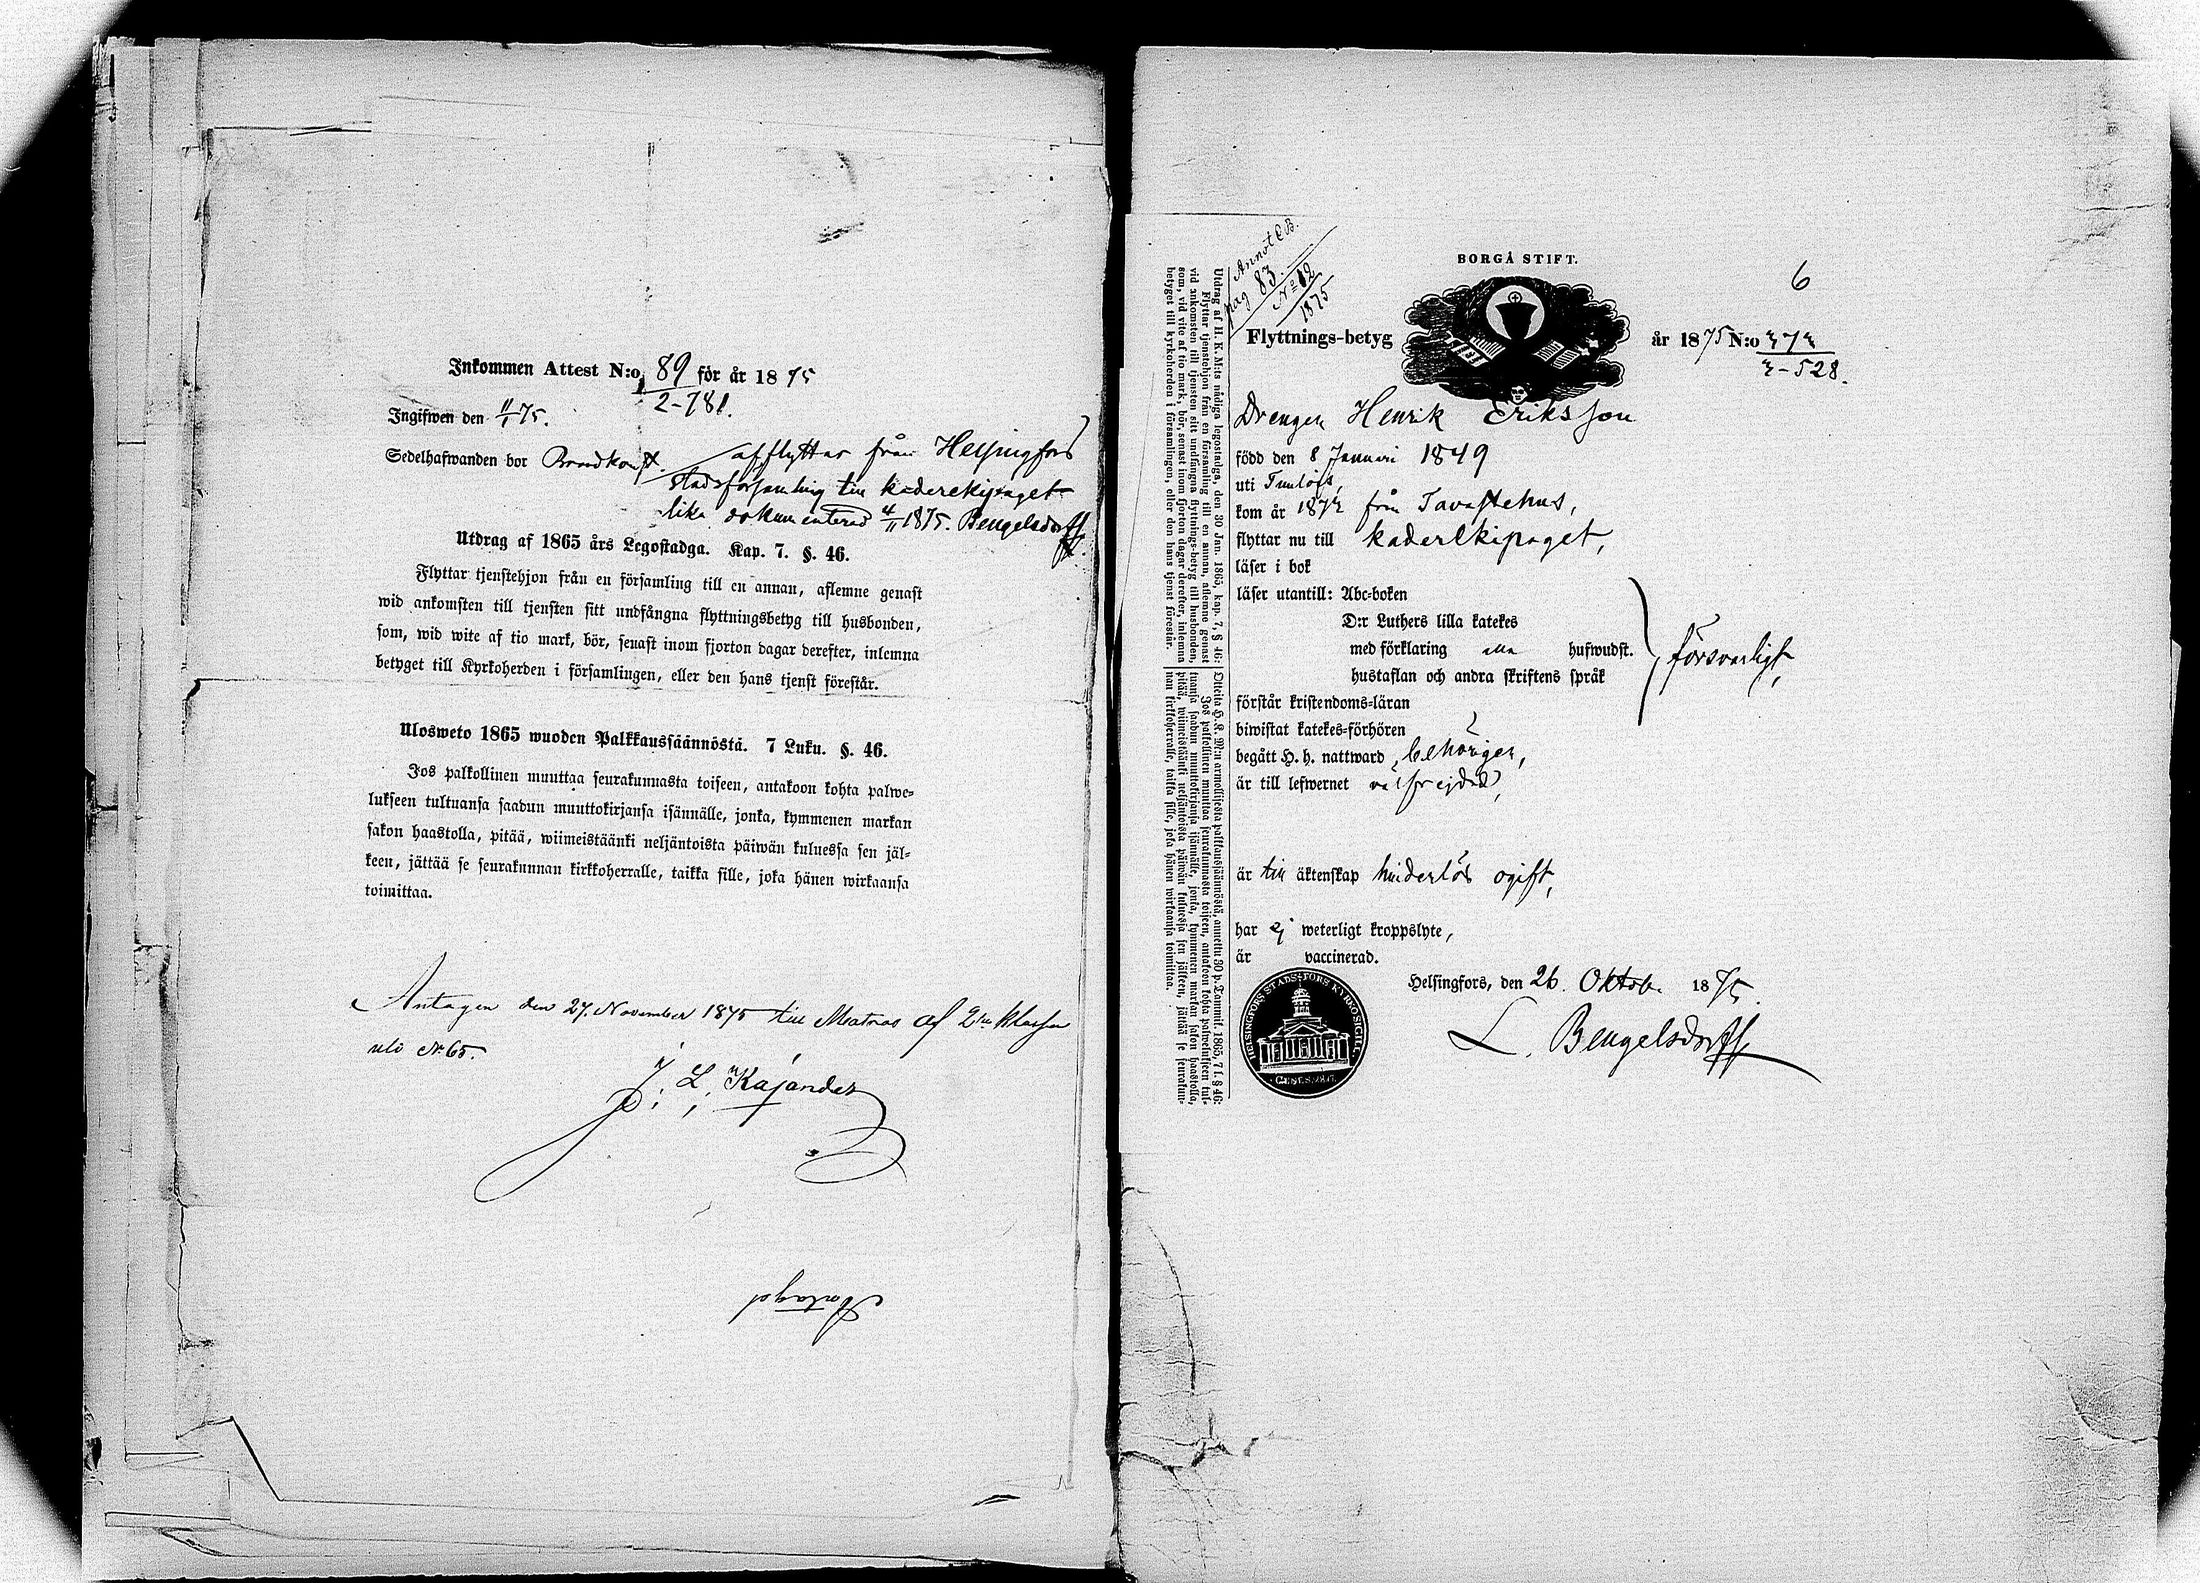 Inkommen Attest N:o 89 för år 1875
2-781.
Ingifwen den 1/11 75.
Sedelhafwanden bor
afflyttar från Helsingfors
stadsförsamling till kaderekipaget
lika dokumenterad 4/11 1875. Bengelsdorff.
Utdrag af 1865 års Legostadga. Kap. 7. §. 46.
Flyttar tjenstehjon från en församling till en annan, aflemne genast
wid ankomsten till tjensten sitt undfångna flyttningsbetyg till husbonden,
som, wid wite af tio mark, bör, senast inom fjorton dagar derefter, inlemna
betyget till Kyrkoherden i församlingen, eller den hans tjenst förestår.
Ulosweto 1865 wuoden Palkkaussäännöstä. 7 Luku. §. 46.
Jos palkollinen muuttaa seurakunnasta toiseen, antakoon kohta palwe-
lukseen tultuansa saadun muuttokirjansa isännälle, jonka, kymmenen markan
sakon haastolla, pitää, wiimeistäänki neljäntoista päiwän kuluessa sen jäl-
keen, jättää se seurakunnan kirkkoherralle, taikka sille, joka hänen wirkaansa
toimittaa.
Antagen den 27. November 1875 till Matros af 2dra klassen
sub N:o 65.
J. L. Kajander
Antagd
Annot C.B.
pag 83.
No 12
1875
BORGÅ STIFT.
6
Flyttnings-betyg
år 1875 N:o 272
2-528.
Drengen Henrik Eriksson
född den 8 Januari 1849
uti Tuulois,
kom år 1872 från Tavastehus,
flyttar nu till kaderekipaget,
läser i bok
läser utantill: Abc-boken
D:r Luthers lilla katekes
med förklaring alla hufwudst.
hustaflan och andra skriftens språk
försvarligt,
förstår kristendoms-läran
biwistat katekes-förhören
begått H. h. nattward behörigen,
är till lefwernet välfrejdad,
är till äktenskap hinderlös ogift,
har ej weterligt kroppslyte,
är vaccinerad.
Helsingfors, den 26. Oktob. 1875.
L. Bengelsdorff
HELSINGFORS STADSFÖRS KYRKOSIGILL
Utdrag af H. K. M:ts nådiga legostadga, den 30 Jan. 1865, kap. 7, § 46:
Flyttar tjenstehjon från en församling till en annan, aflemne genast
vid ankomsten till tjensten sitt undfångna flyttnings-betyg till husbonden,
som, vid vite af tio mark, bör, senast inom fjorton dagar derefter, inlemna
betyget till kyrkoherden i församlingen, eller den hans tjenst förestår.
Otteita H. K. M:n armollisesta palkkaussäännöstä, annettu 30 p. Tammik. 1865, 7 l. § 46:
Jos palkollinen muuttaa seurakunnasta toiseen, antakoon kohta palwelukseen tul-
tuansa saadun muuttokirjansa isännälle, jonka, kymmenen markan sakon haastolla,
pitää, wiimeistäänki neljäntoista päiwän kuluessa sen jälkeen, jättää se seurakun-
nan kirkkoherralle, taikka sille, joka hänen wirkaansa toimittaa.